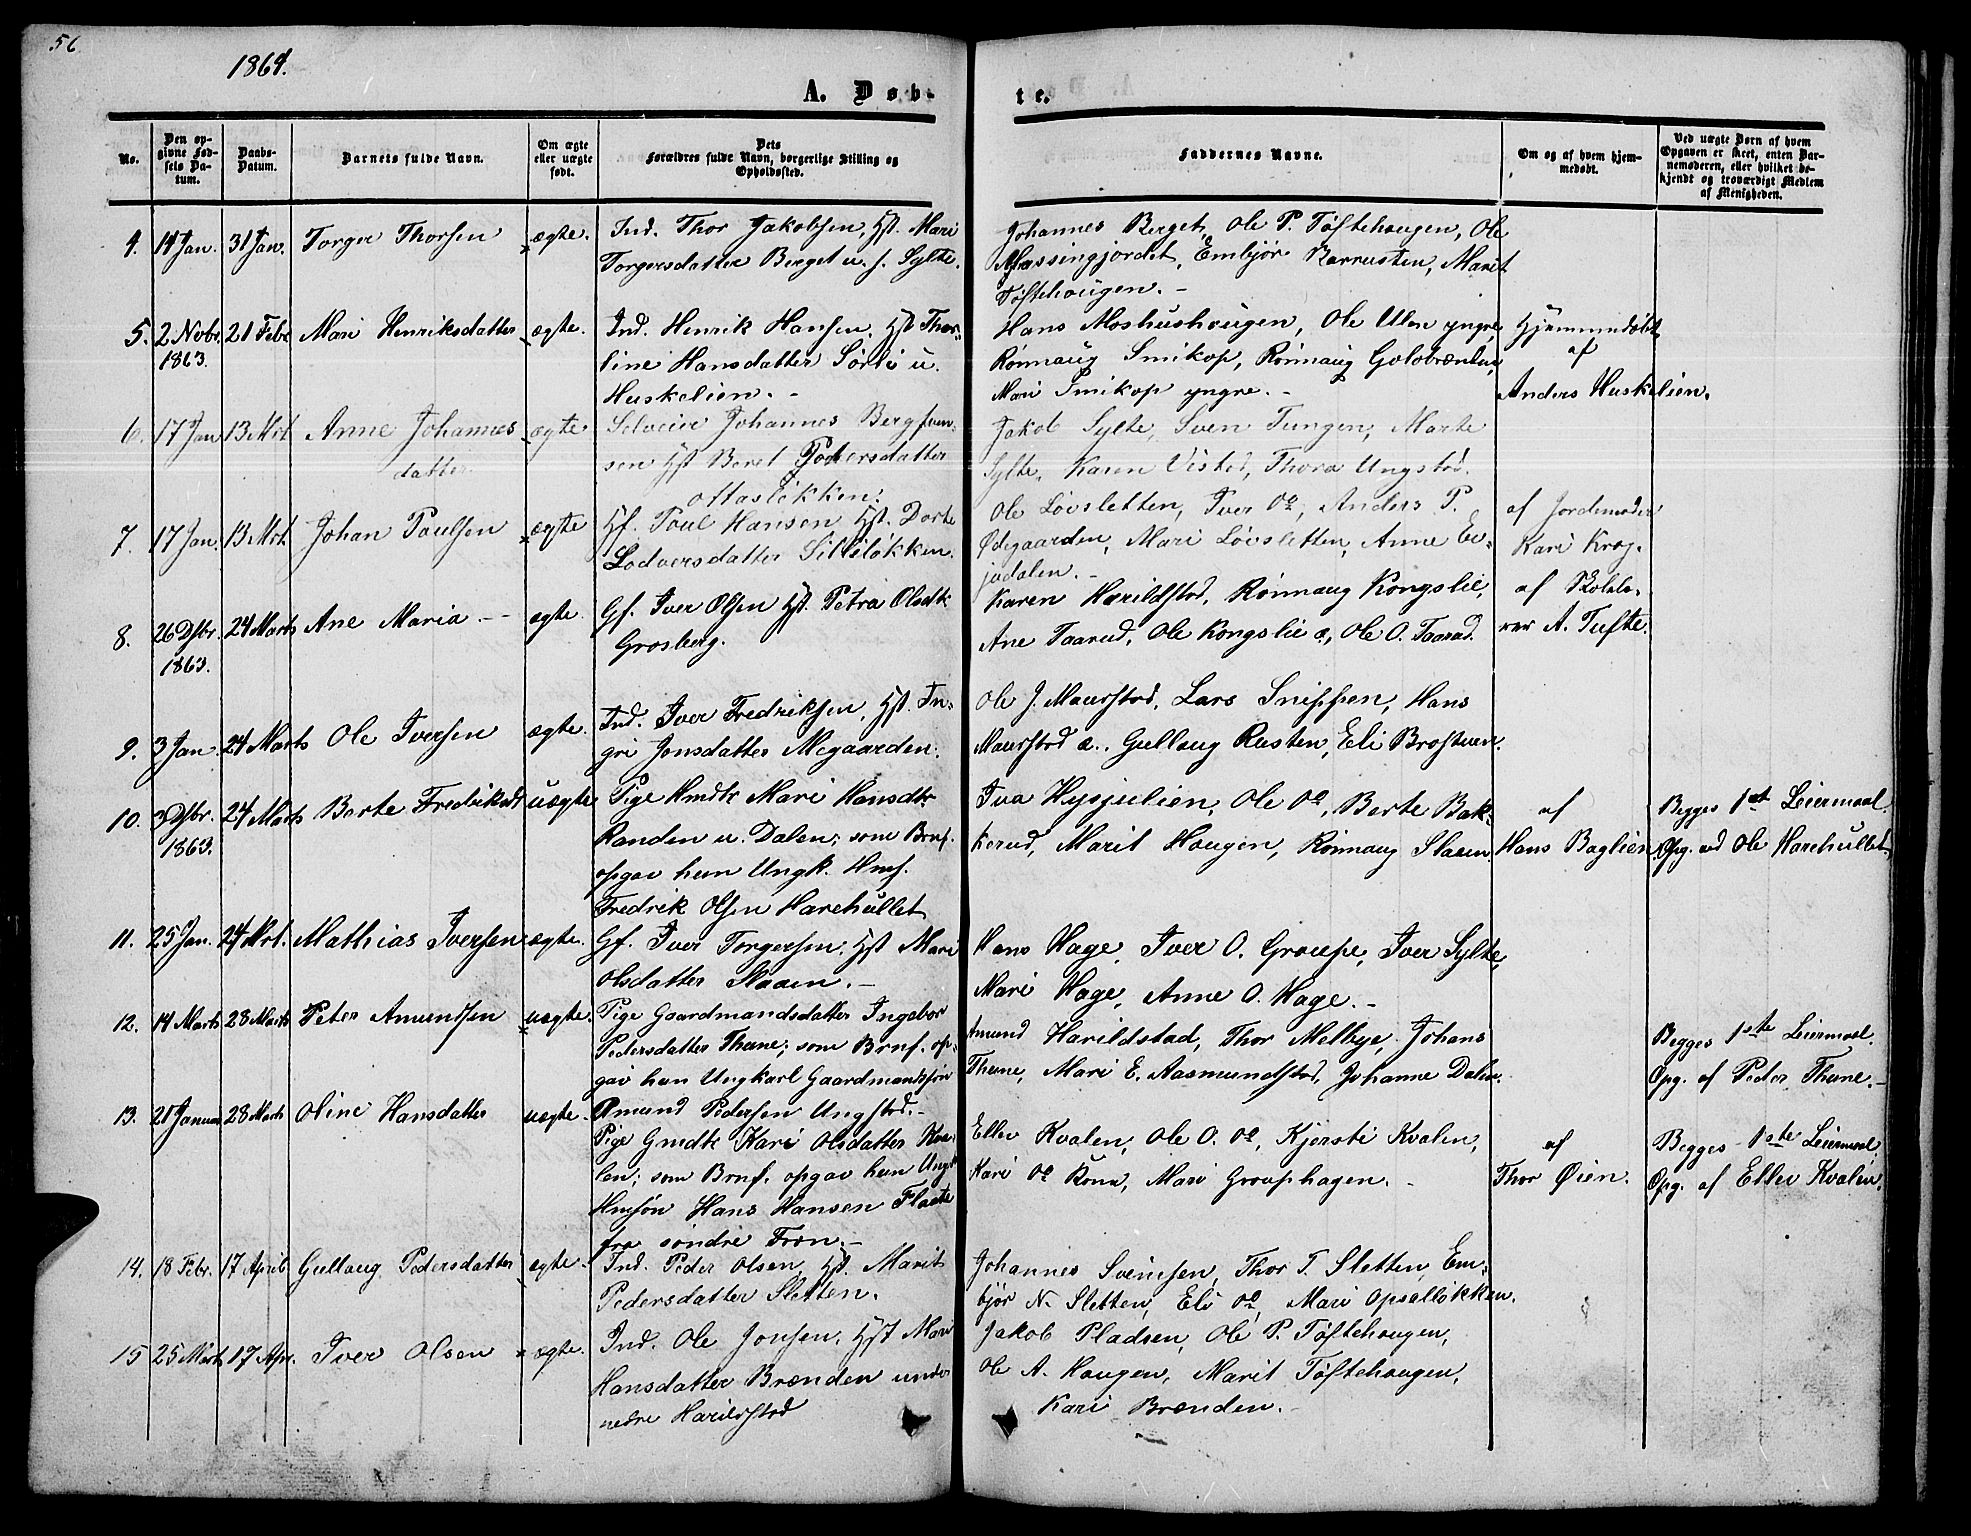 56
1864.
A. Døb-
te.
No.
Den op-
givne Fød-
sels Da-
tum.
Daabs-
Datum.
Barnets fulde Navn.
Om ægte
eller uægte
født.
Dets
Forældres fulde Navn, borgerlige Stilling og
Opholdssted.
Faddernes Navne.
Om og af hvem hjem-
medøbt.
Ved uægte Børn af hvem
Opgaven er skeet, enten Bar-
nemoderen, eller hvilket be-
kjendt og troværdigt Medlem
af Menigheden.
4. 14 Jan. 31 Jan. Torger Thorsen ægte. Ind. Thor Jakobsen, Hst. Mari
Torgersdatter Berget u. s. Sylte.
Johannes Berget, Ole P. Toftehougen, Ole
Massingjordet, Embjør Rarrusten, Marit
Töftehougen. -
5. 2 Nvbr. 21 Febr Mari Henriksdatter ægte. Ind. Henrik Hansen, Hst Thor-
1863. line Hansdatter Sörli u.
Huskelien. -
Hans Moshushougen, Ole Ulen yngre,
Rönnaug Smikop, Rönnaug Golobrænden,
Mari Smikop yngre. -
Hjemmedöbt
af
Anders Huskelien.
6. 17 Jan 13 Mrt. Anne Johannes ægte Selveier Johannes Bergsven-
datter sen Hst Beret Pedersdatter
Ottaslökken.
Jakob Sylte, Sven Tungen, Marte
Sylte, Karen Vistad, Thora Ungstad.
7. 17 Jan. 13 Mrt. Johan Paulsen ægte Hf. Poul Hansen Hst. Dorte
Lodversdatter Sillilökken.
Ole Lövsletten, Iver do, Anders P.
Ødegaarden, Mari Lövsletten, Anne Ei-
judalen. -
af Jordemoder
Kari Krog.
8. 26 Dsbr. 24 Marts Ane Maria - ægte Gf. Iver Olsen Hst. Petra Olsdtr
1863. Grosberg.
Karen Harildstad, Rönnaug Kongslie,
Ane Taarud, Ole Kongslie æ, Ole O. Taarud.
af Skolelæ-
rer A. Tufte.
9. 3 Jan. 24 Marts Ole Iversen ægte. Ind. Iver Fredriksen, Hst. In-
gri Jonsdatter Megaarden.
Ole J. Maurstad, Lars Snippen, Hans
Maurstad æ., Gullaug Rusten, Eli Brostuen.
10. 3 Dsbr. 24 Marts Berte Fredriksd uægte Pige Hmdtr Mari Hansdtr
1863. Randen u. Dalen; som Brnf.
opgav hun Ungk. Hms.
Fredrik Olsen Harehullet
Iva Hysjulien, Ole do, Berte Bak-
kerud, Marit Hougen, Rönnaug Slaaen
af
Hans Baglien
Begges 1ste Leiermaal.
Opg. ved Ole Harehullet
11. 25 Jan. 24 Mrt. Mathias Iversen ægte. Gf. Iver Torgersen, Hst Mari
Olsdatter Slaaen. -
Hans Hage, Iver O. Groupe, Iver Sylte,
Mari Hage, Anne O. Hage. -
12. 14 Marts 28 Marts Peter Amundsen uægte. Pige Gaardmandsdatter Ingebor
Pedersdatter Thune; som Brnf. op-
gav hun Ungkarl Gaardmandssøn
Amund Pedersen Ungstad. -
Amund Harildstad, Thor Melbye, Johans
Thune, Mari E. Aasmundstad, Johanne Dalen.
Begges 1ste Leiermaal.
Opg. af Peder Thune. -
13. 21 Januar 28 Marts Oline Hansdatter uægte. Pige Gmdtr Kari Olsdatter Kva-
len; som Brnf. opgav hun Ungk
Hmsön Hans Hansen Flaate
fra söndre Fron. -
Ellev Kvalen, Ole O. do, Kjersti Kvalen,
Kari do Kone, Mari Grouphagen. -
af
Thor Øien.
Begges 1ste Leiermaal.
Opg. af Ellev Kvalen.
14. 18 Febr. 17 April Gullaug Pedersdatter ægte. Ind. Peder Olsen, Hst. Marit
Pedersdatter Sletten.
Johannes Svensen, Thor T. Sletten, Em-
björ N. Sletten, Eli do, Mari Opsallökken.
15 25 Marts 17 Apr. Iver Olsen ægte. Ind. Ole Jonsen, Hst Mari
Hansdatter Brænden under
nedre Harildstad
Jakob Pladsen, Ole P. Töftehougen,
Ole A. Hougen, Marit Töftehougen,
Kari Brænden. -